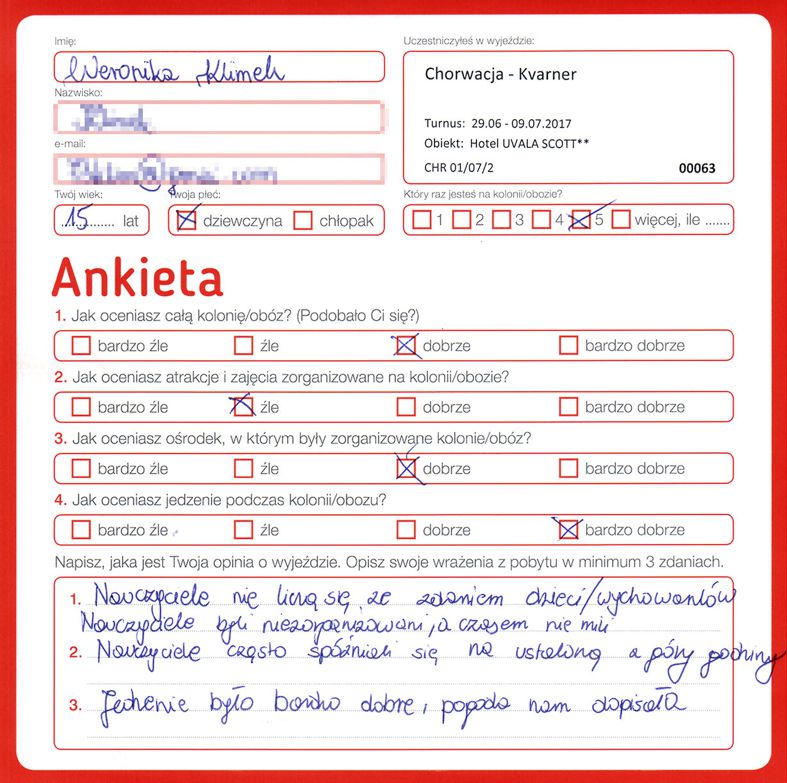 Imię:
Weronika Klimek
Nazwisko:
e-mail:
Twój wiek:
15 lat
Twoja płeć:
dziewczyna chłopak
Uczestniczyłeś w wyjeździe:
Chorwacja - Kvarner
Turnus: 29.06 - 09.07.2017
Obiekt: Hotel UVALA SCOTT**
CHR 01/07/2 00063
Który raz jesteś na kolonii/obozie?
1 2 3 4 5 więcej, ile .......
Ankieta
1. Jak oceniasz całą kolonię/obóz? (Podobało Ci się?)
bardzo źle źle dobrze bardzo dobrze
2. Jak oceniasz atrakcje i zajęcia zorganizowane na kolonii/obozie?
bardzo źle źle dobrze bardzo dobrze
3. Jak oceniasz ośrodek, w którym były zorganizowane kolonie/obóz?
bardzo źle źle dobrze bardzo dobrze
4. Jak oceniasz jedzenie podczas kolonii/obozu?
bardzo źle źle dobrze bardzo dobrze
Napisz, jaka jest Twoja opinia o wyjeździe. Opisz swoje wrażenia z pobytu w minimum 3 zdaniach.
1. Nauczyciele nie liczą się ze zdaniem dzieci/wychowanków
Nauczyciele byli niezorganizowani, a czasem nie mili
2. Nauczyciele często spóźniali się na ustaloną z góry godzinę
3. Jedzenie było bardzo dobre, pogoda nam dopisała